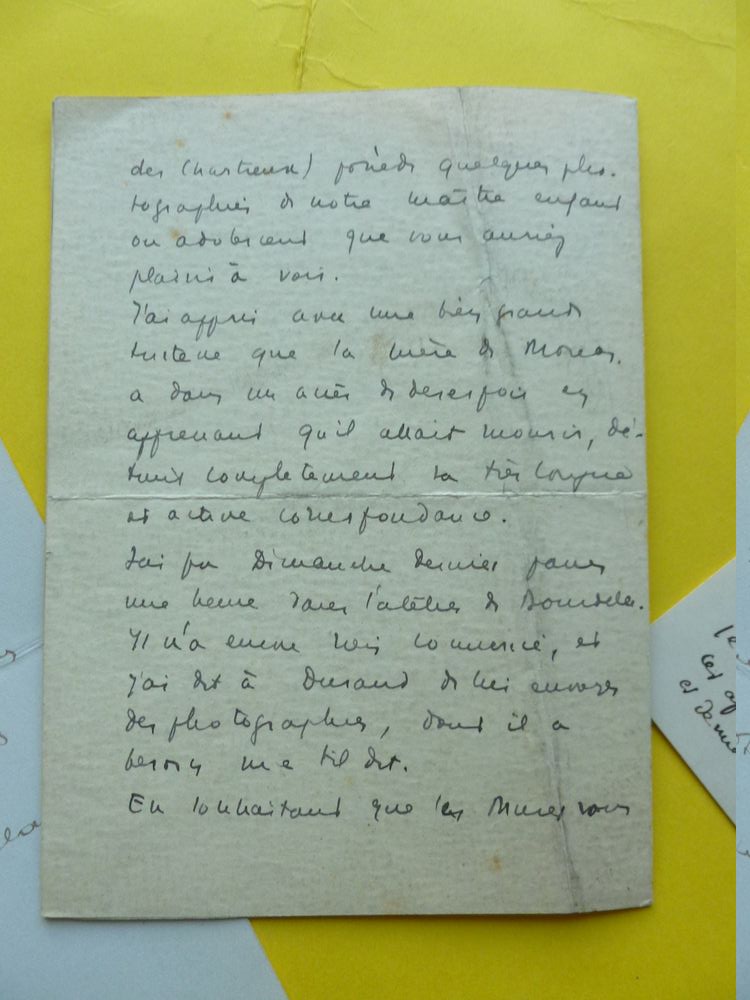 des Chartreux) possède quelques pho-
tographies de notre maître enfant
ou adolescent que vous auriez
plaisir à voir.
J'ai appris avec une bien grande
tristesse que la mère de Moréas,
a dans un accès de desespoir en
apprenant qu'il allait mourir, dé-
truit completement sa très longue
et active correspondance.
J'ai pu Dimanche dernier passer
une heure dans l'atelier de Bourdelle.
Il n'a encore rien commencé, et
j'ai dit à Durand de lui envoyer
des photographies, dont il a
besoin m'a t'il dit.
En souhaitant que les Muses vous